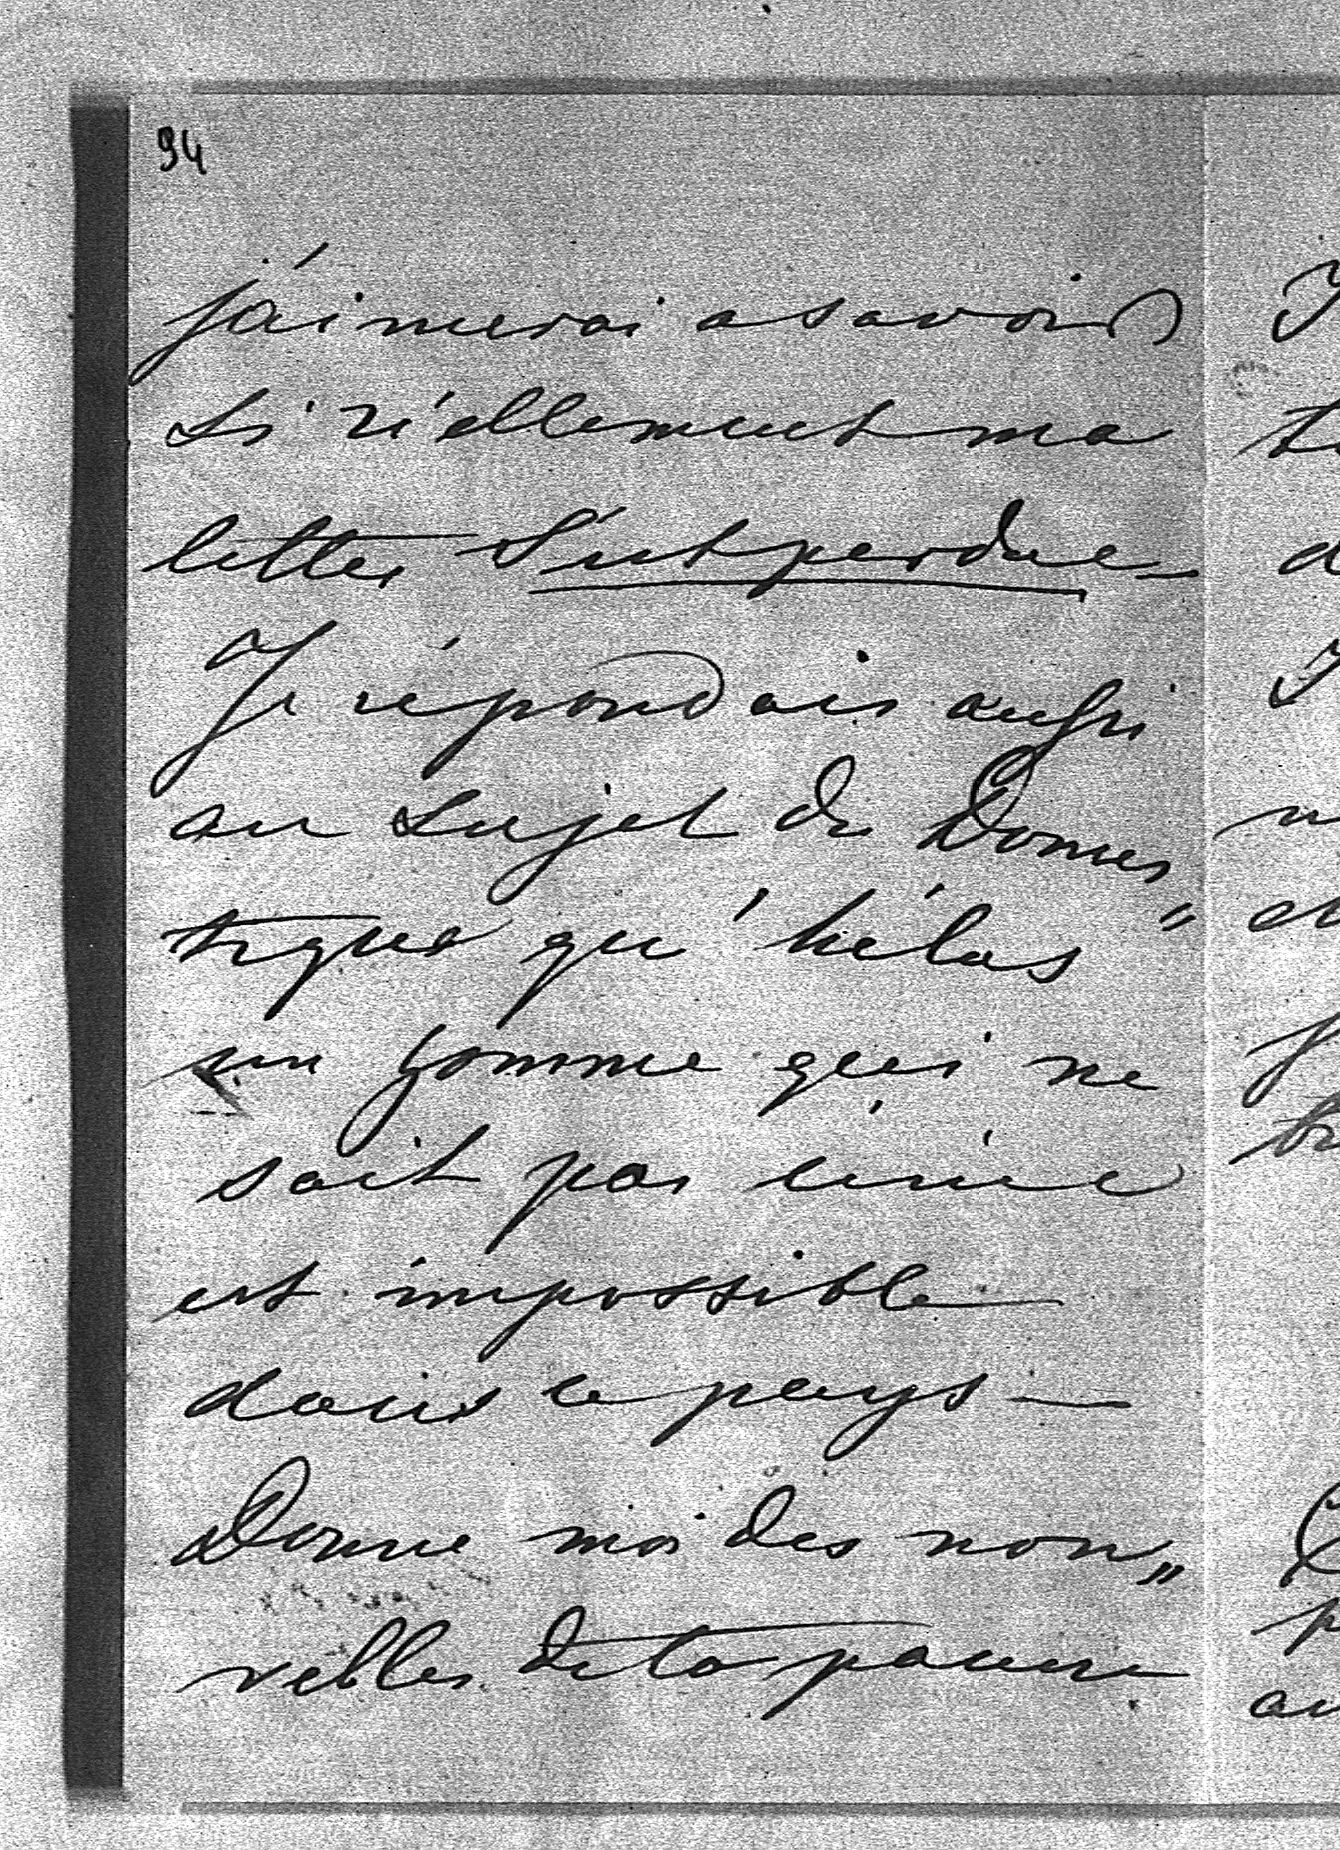 94
j'aimerai a savoir
si réellement ma
lettre s'est perdue —
Je répondais aussi
au sujet du Domes
tique qu'hélas "
un homme qui ne
soit pas
est impossible
dans le pays —
Donne moi des nou "
velles de ta pauvre